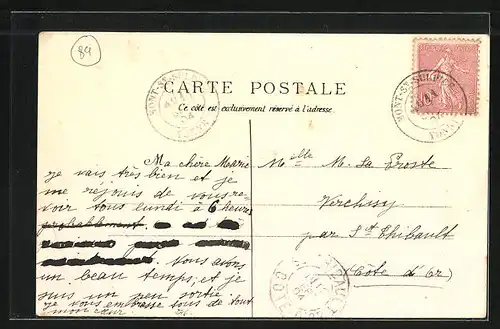 89
CARTE POSTALE
Ce côté est exclusivement réservé à l'adresse.
MONT-ST-SULPICE
YONNE
MONT-ST-SULPICE
YONNE
Ma chère Marie
je vais très bien et je
me réjouis de vous re-
voir tous lundi à 6 heures
probablement
Nous avons
un beau temps, et je
suis un peu sortie.
Je vous embrasse tous de tout
mon cœur M.
Melle M. La Proste
Verchisy
par St Thibault
(Côte d'Or)